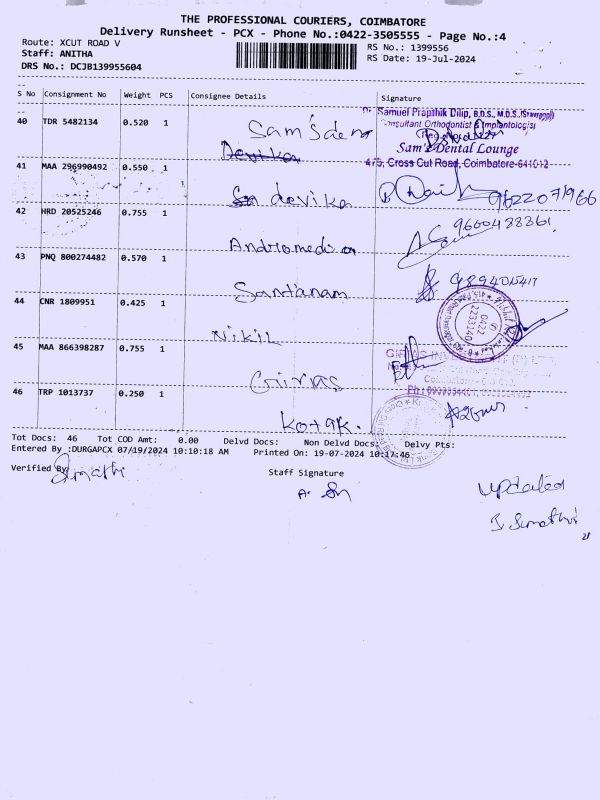 THE PROFESSIONAL COURIERS, COIMBATORE
Delivery Runsheet - PCX - Phone No.:0422-3505555 - Page No.:4
Route: XCUT ROAD V
RS No.: 1399556
Staff: ANITHA
RS Date: 19-Jul-2024
DRS No.: DCJB139955604
S No Consignment No Weight PCS Consignee Details Signature
40 TDR 5482134 0.520 1 Sam's den
Devika
Dr. Samuel Prapthik Dilip, B.D.S., M.D.S.
Consultant Orthodontist & Implantologist
Sam's Dental Lounge
475, Cross Cut Road, Coimbatore-641012
41 MAA 296990492 0.550 1 devika 9622071966
42 HRD 20525246 0.755 1 Andromedia 9600438361
43 PNQ 800274482 0.570 1 Santanam
44 CNR 1809951 0.425 1 Nikil
0422
45 MAA 866398287 0.755 1 Girias
46 TRP 1013737 0.250 1 Kotak.
Tot Docs: 46 Tot COD Amt: 0.00 Delvd Docs: Non Delvd Docs: Delvy Pts:
Entered By :DURGAPCX 07/19/2024 10:10:18 AM Printed On: 19-07-2024 10:17:46
Verified By
Staff Signature
updated
S. Sumathi
21